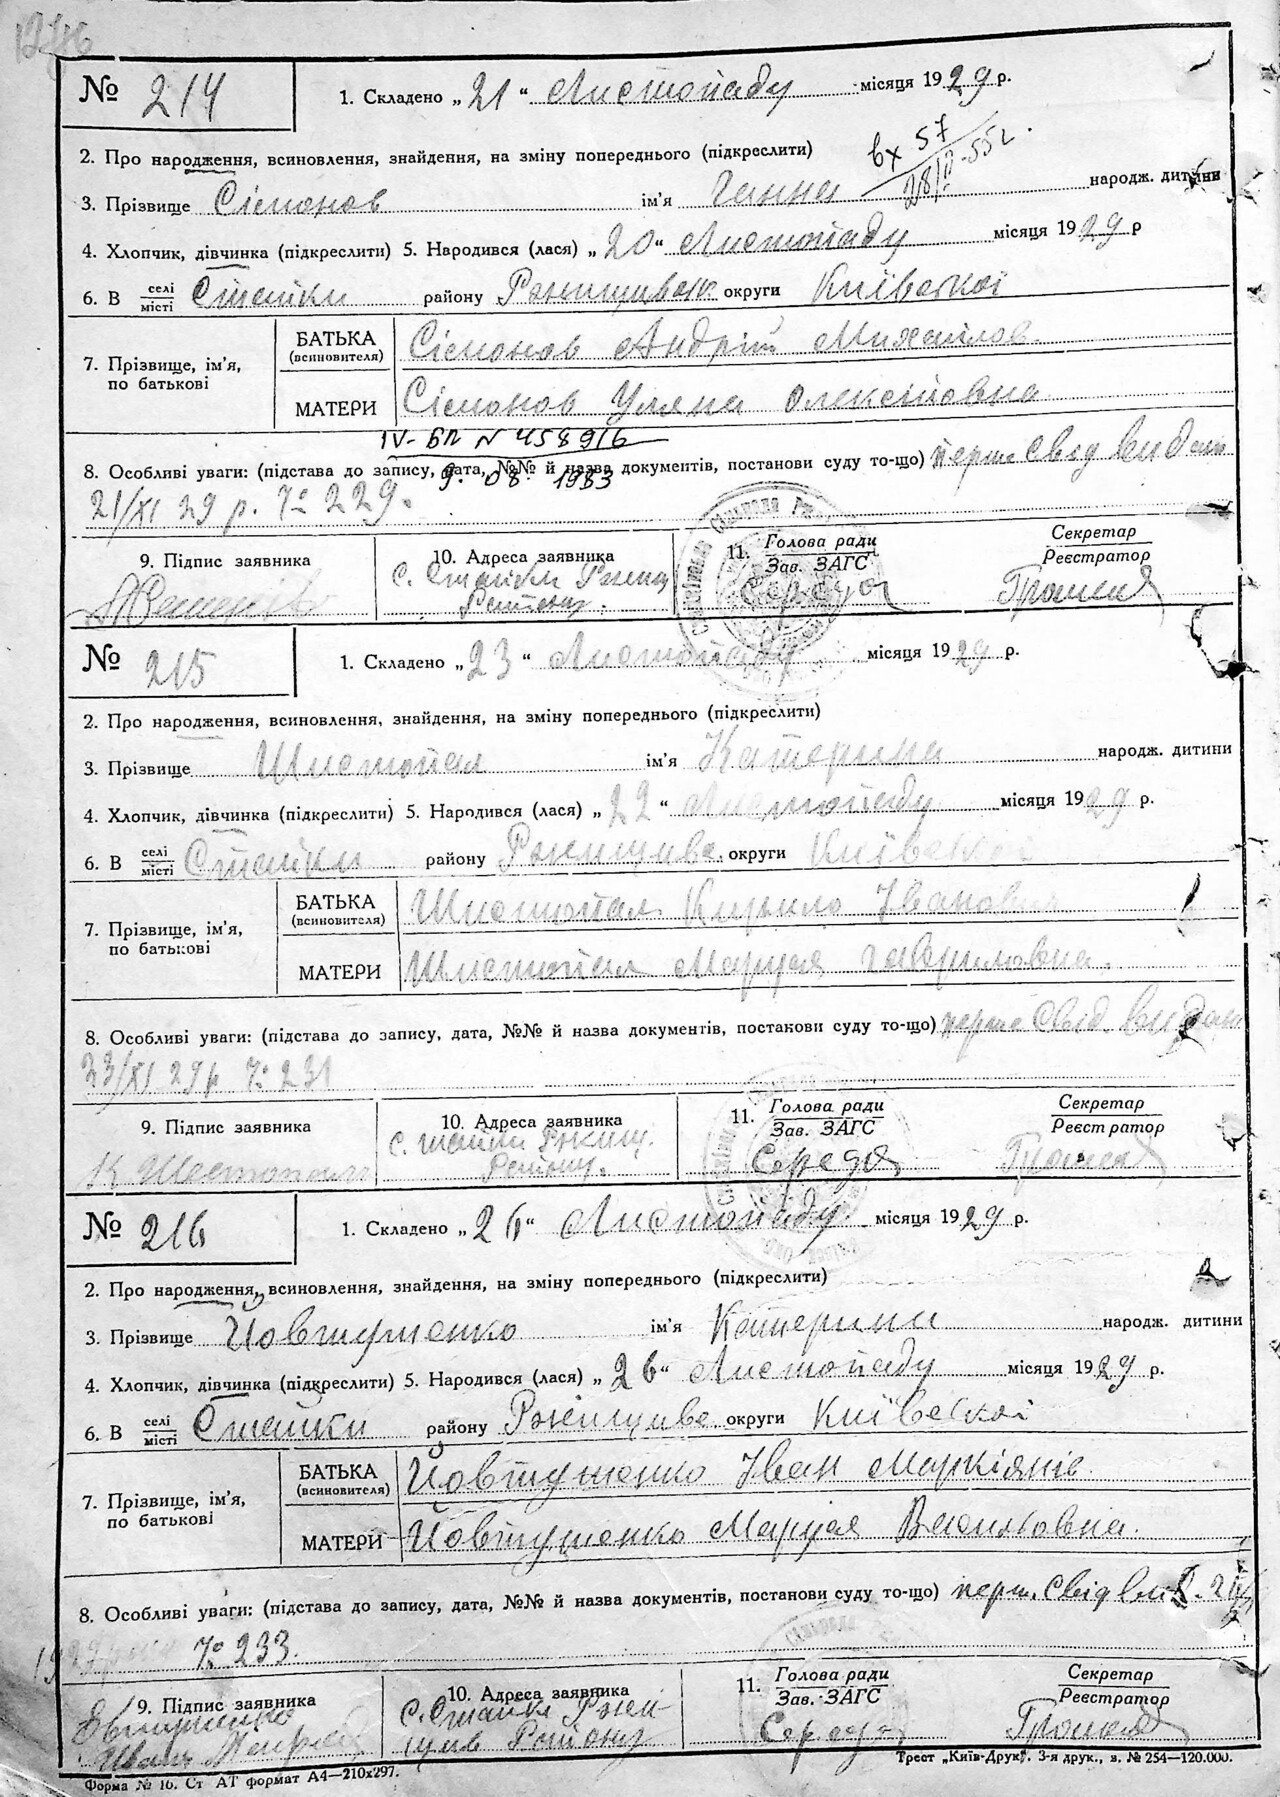 № 214
1. Складено „21“ Листопаду місяця 1929 р.
2. Про народження, всиновлення, знайдення, на зміну попереднього (підкреслити)
вх 57
3. Прізвище Сімонов ім'я Ганна народж. дитини
4. Хлопчик, дівчинка (підкреслити) 5. Народився (лася) „20“ Листопаду місяця 1929 р
6. В селі Стайки району Ржищивськ округи Київської
місті
7. Прізвище, ім'я, по батькові
БАТЬКА (всиновителя) Сімонов Андрій Михайлов.
МАТЕРИ Сімонов Уляна Олексіївна
IV-БП N 458916
8. Особливі уваги: (підстава до запису, дата, №№ й назва документів, постанови суду то-що) перше свід видат
9. 08. 1983
21/XI 29 р. № 229.
9. Підпис заявника
10. Адреса заявника
с. Стайки Ржищ
Району.
11. Голова ради
Зав. ЗАГС
Середа
Секретар
Реєстратор
№ 215
1. Складено „23“ Листопаду місяця 1929 р.
2. Про народження, всиновлення, знайдення, на зміну попереднього (підкреслити)
3. Прізвище Шистопал ім'я Катерина народж. дитини
4. Хлопчик, дівчинка (підкреслити) 5. Народився (лася) „22“ Листопаду місяця 1929 р.
6. В селі Стайки району Ржищиве. округи Київської
місті
7. Прізвище, ім'я, по батькові
БАТЬКА (всиновителя) Шистопал Кирило Іванович
МАТЕРИ Шистопал Маруся Гавриловна.
8. Особливі уваги: (підстава до запису, дата, №№ й назва документів, постакови суду то-що) перше свід. видат
23/XI 29 р № 231
9. Підпис заявника
К Шестопалъ
10. Адреса заявника
с. Стайки Ржищ.
Району.
11. Голова ради
Зав. ЗАГС
Середа
Секретар
Реєстратор
№ 216
1. Складено „26“ Листопаду місяця 1929 р.
2. Про народження, всиновлення, знайдення, на зміну попереднього (підкреслити)
3. Прізвище Йовтушенко ім'я Катерини народж. дитини
4. Хлопчик, дівчинка (підкреслити) 5. Народився (лася) „26“ Листопаду місяця 1929 р.
6. В селі Стайки району Ржищиве округи Київської
місті
7. Прізвище, ім'я, по батькові
БАТЬКА (всиновителя) Йовтушенко Іван Маркіянів.
МАТЕРИ Йовтушенко Маруся Васильовна.
8. Особливі уваги: (підстава до запису, дата, №№ й назва документів, постанови суду то-що) перш. свід вид.
№ 233.
9. Підпис заявника
Євтушенко
Иван
10. Адреса заявника
с. Стайки Ржи-
щив Району
11. Голова ради
Зав. ЗАГС
Середа
Секретар
Реєстратор
Форма № 16. Ст АТ формат А4—210х297.
Трест „Київ-Друк“. 3-я друк., в. № 254—120.000.